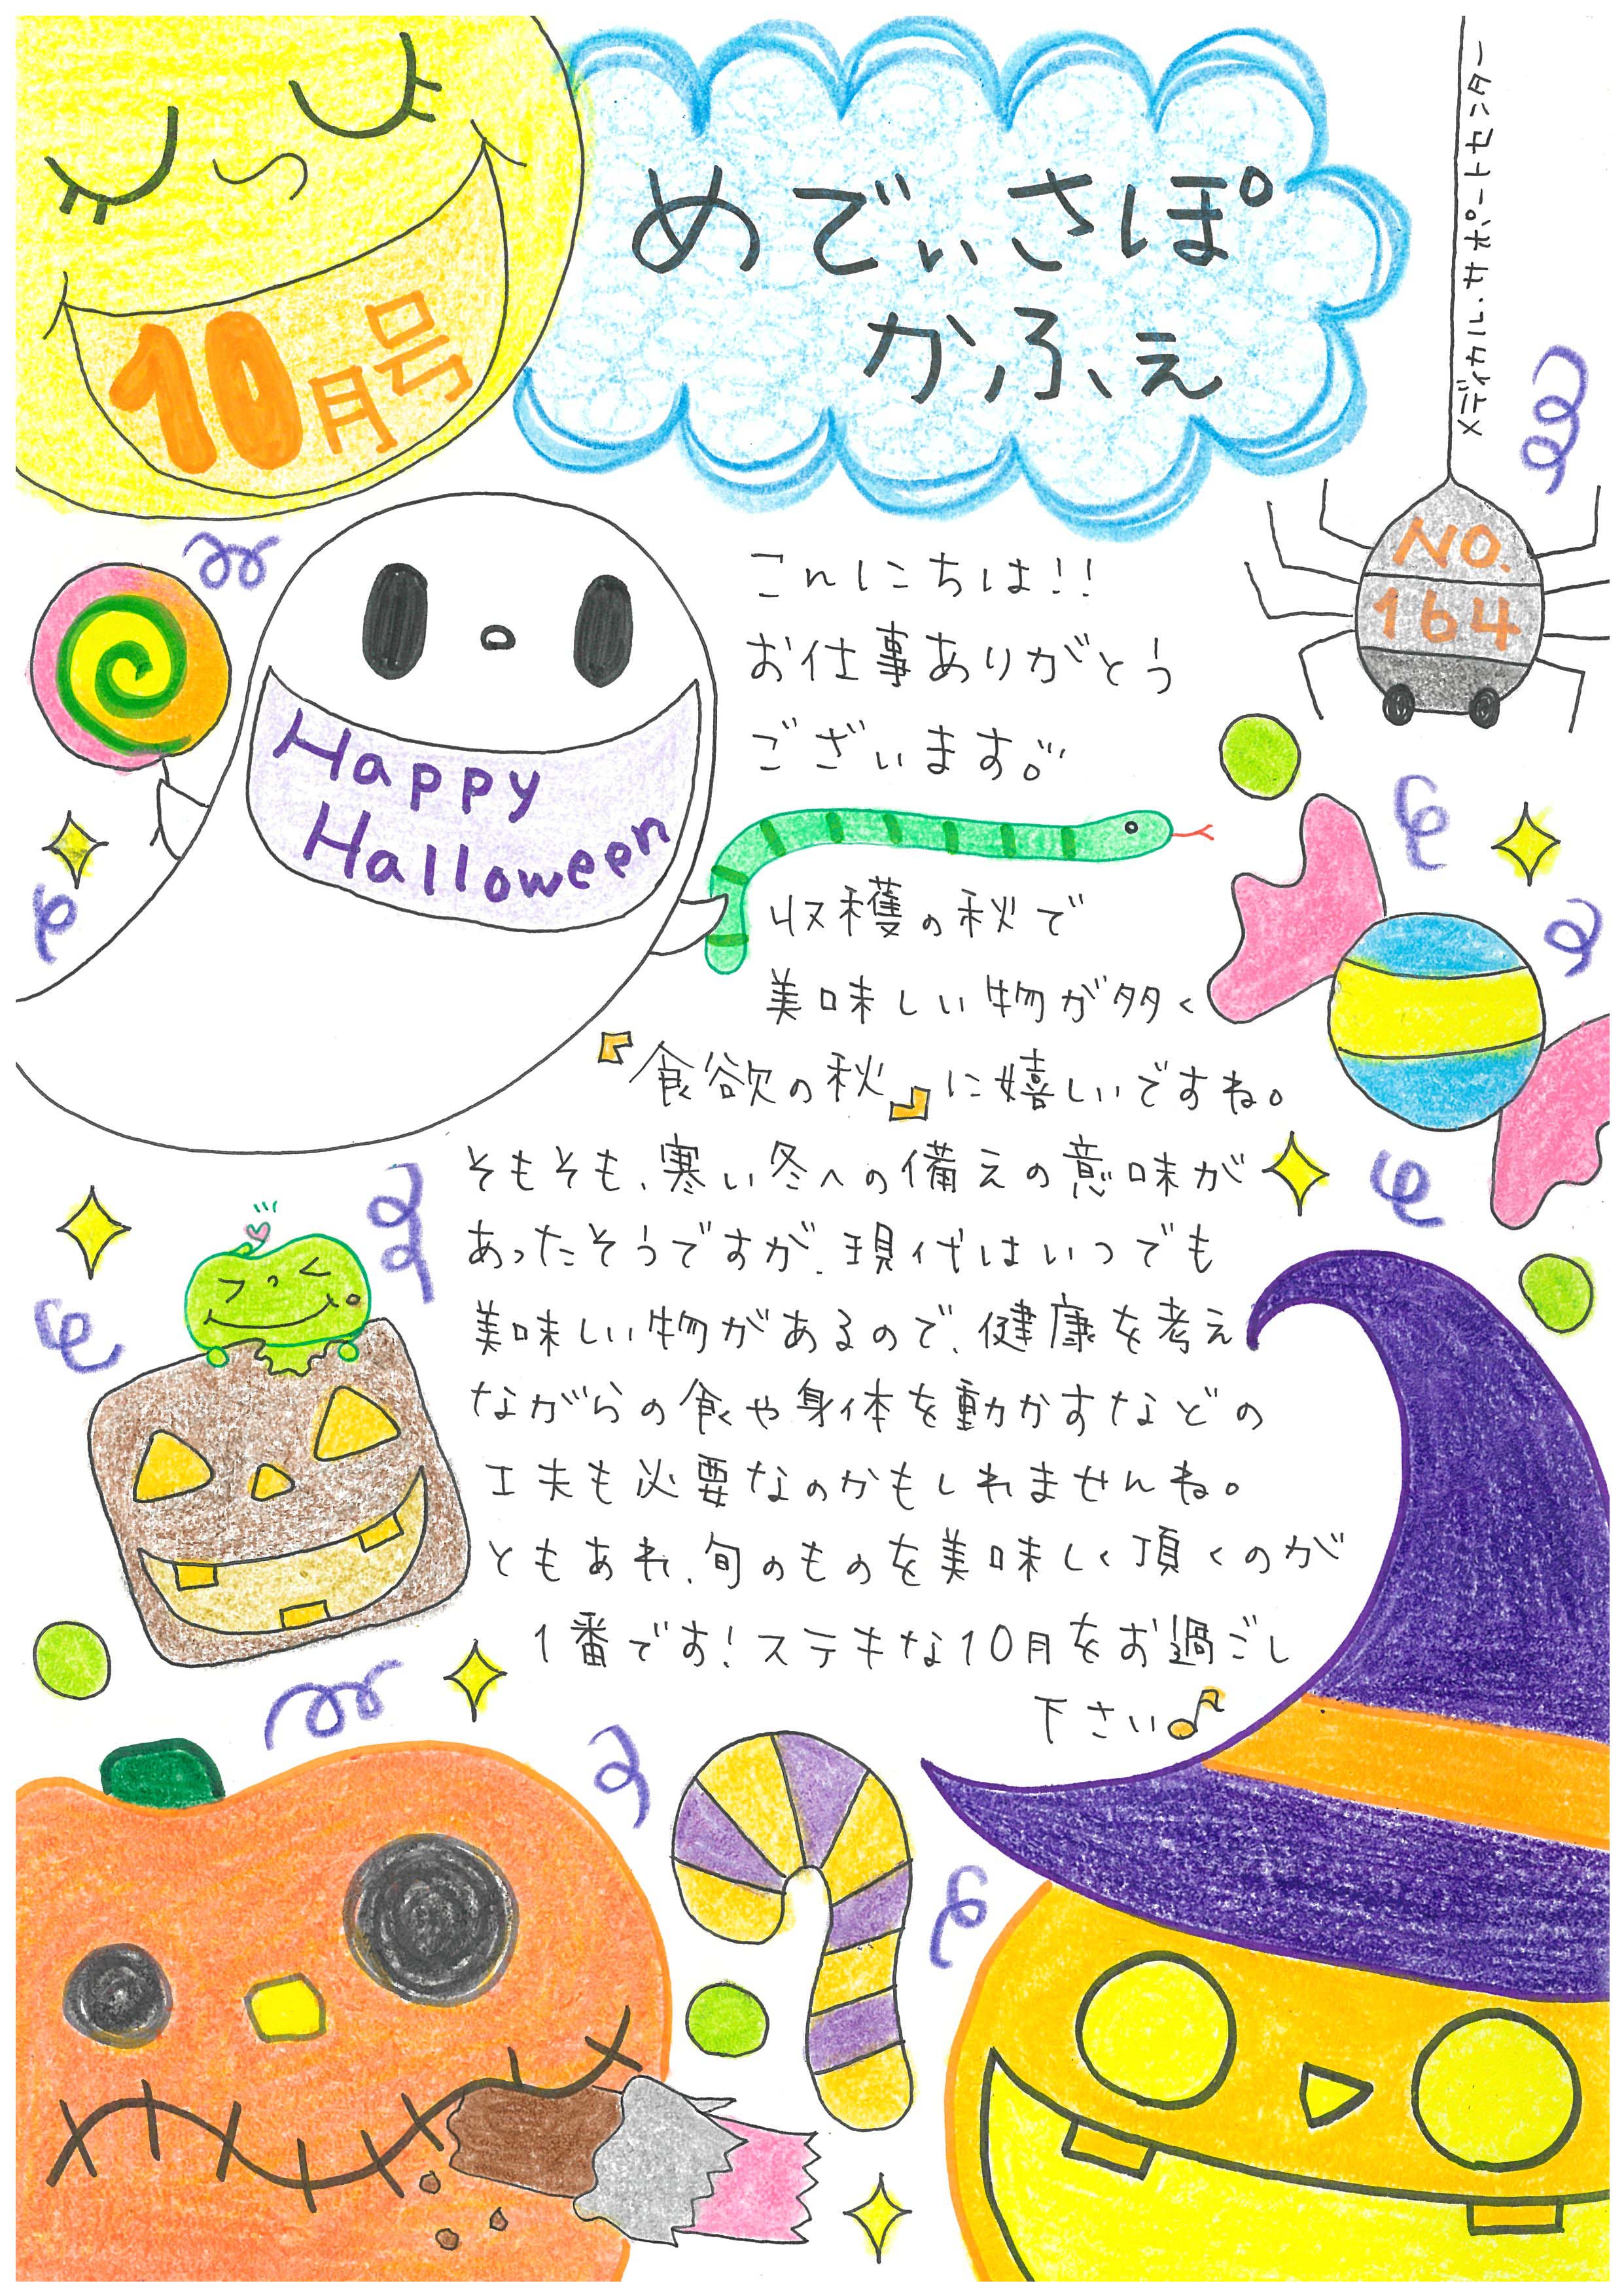 10月号
めでぃさぽ
かふぇ
メディカル・サポートセンター
NO.
164
Happy
Halloween
こんにちは!!
お仕事ありがとう
ございます。
収穫の秋で
美味しい物が多く
『食欲の秋』に嬉しいですね。
そもそも、寒い冬への備えの意味が
あったそうですが、現代はいつでも
美味しい物があるので、健康を考え
ながらの食や身体を動かすなどの
工夫も必要なのかもしれませんね。
ともあれ、旬のものを美味しく頂くのが
1番です!ステキな10月をお過ごし
下さい♪